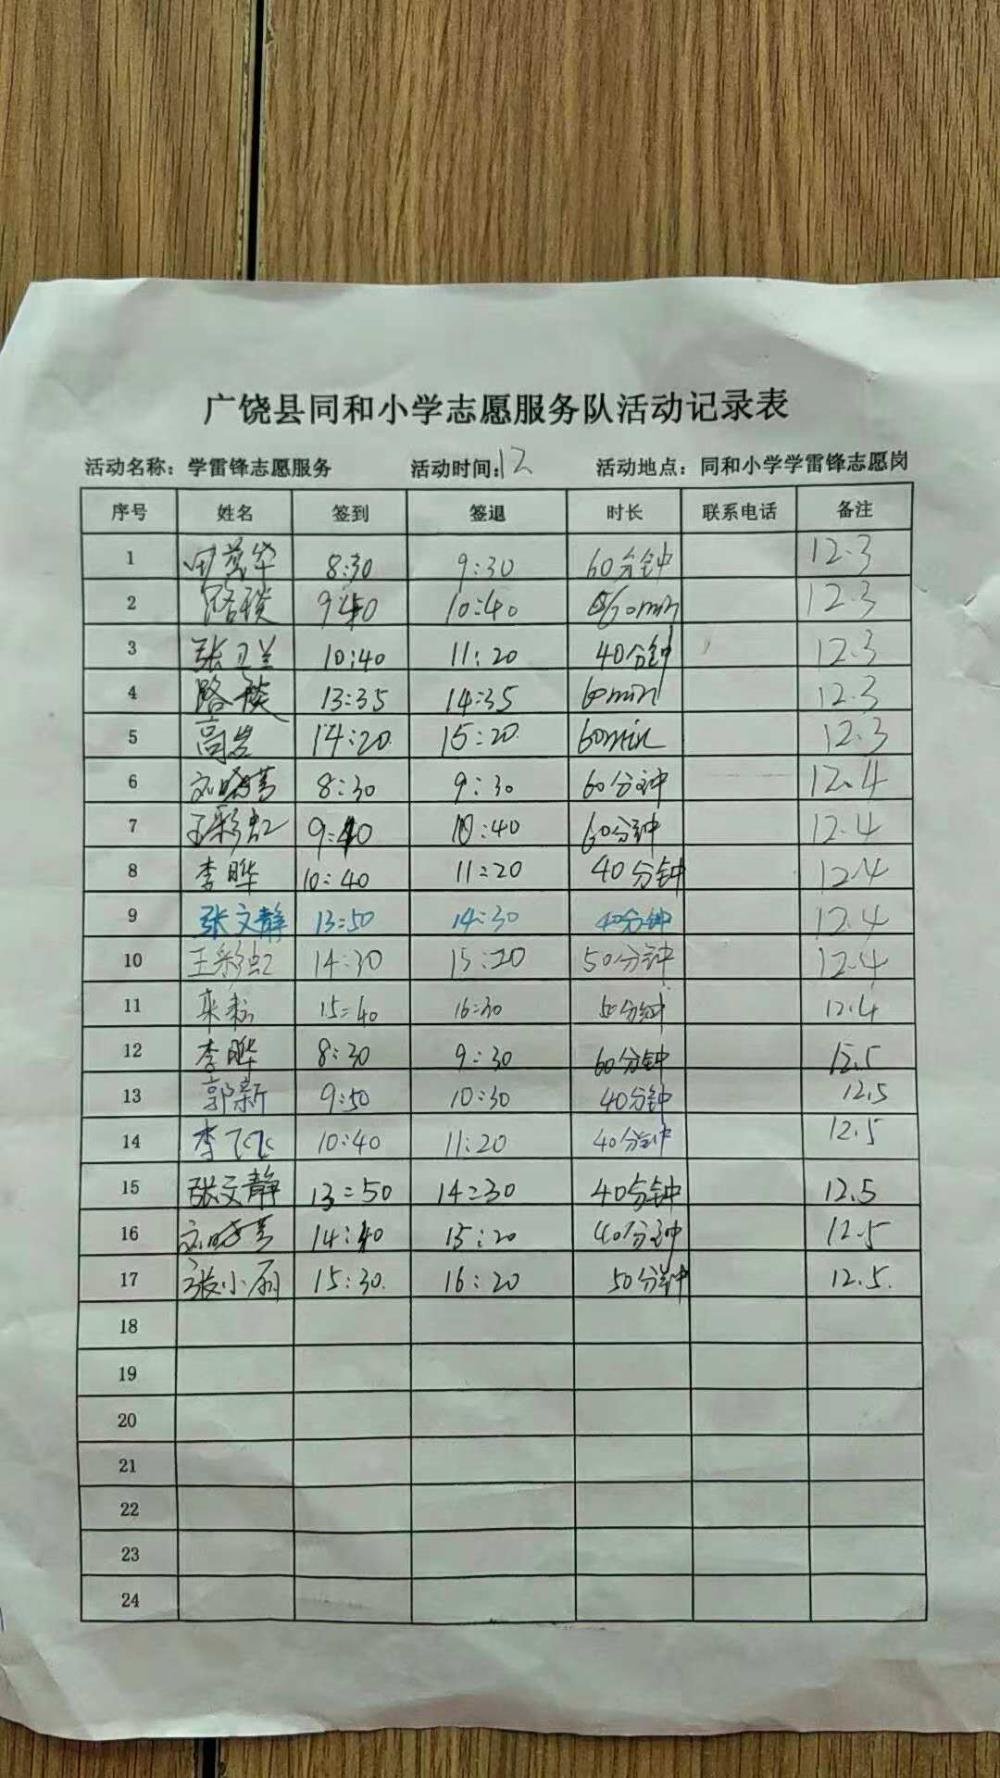 广饶县同和小学志愿服务队活动记录表
活动名称：学雷锋志愿服务 活动时间：12 活动地点：同和小学学雷锋志愿岗
序号 姓名 签到 签退 时长 联系电话 备注
1 8:30 9:30 60分钟 12.3
2 9:40 10:40 60min 12.3
3 张卫兰 10:40 11:20 40分钟 12.3
4 13:35 14:35 60min 12.3
5 14:20 15:20 60min 12.3
6 刘晓菁 8:30 9:30 60分钟 12.4
7 王彩虹 9:40 10:40 60分钟 12.4
8 李晔 10:40 11:20 40分钟 12.4
9 张文静 13:50 14:30 40分钟 12.4
10 王彩虹 14:30 15:20 50分钟 12.4
11 15:40 16:30 50分钟 12.4
12 李晔 8:30 9:30 60分钟 12.5
13 郭新 9:50 10:30 40分钟 12.5
14 李飞飞 10:40 11:20 40分钟 12.5
15 张文静 13:50 14:30 40分钟 12.5
16 刘晓菁 14:40 15:20 40分钟 12.5
17 张小丽 15:30 16:20 50分钟 12.5.
18
19
20
21
22
23
24